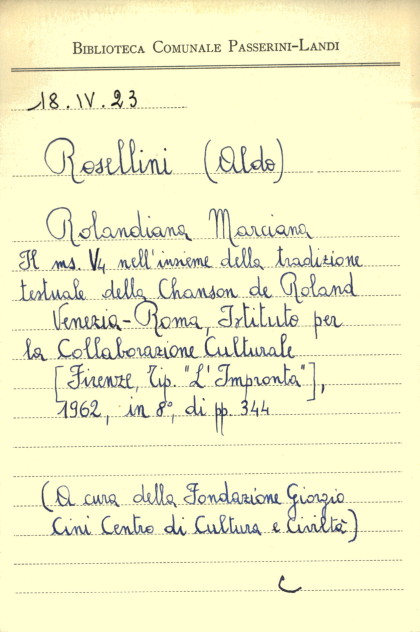 BIBLIOTECA COMUNALE PASSERINI-LANDI
18.IV.23
Rosellini (Aldo)
Rolandiana Marciana
Il ms. V4 nell'insieme della tradizione
testuale della Chanson de Roland
Venezia-Roma, Istituto per
la Collaborazione Culturale
[Firenze, Tip. "L'Impronta"],
1962, in 8°, di pp. 344
(A cura della Fondazione Giorgio
Cini Centro di Cultura e Civiltà)
C